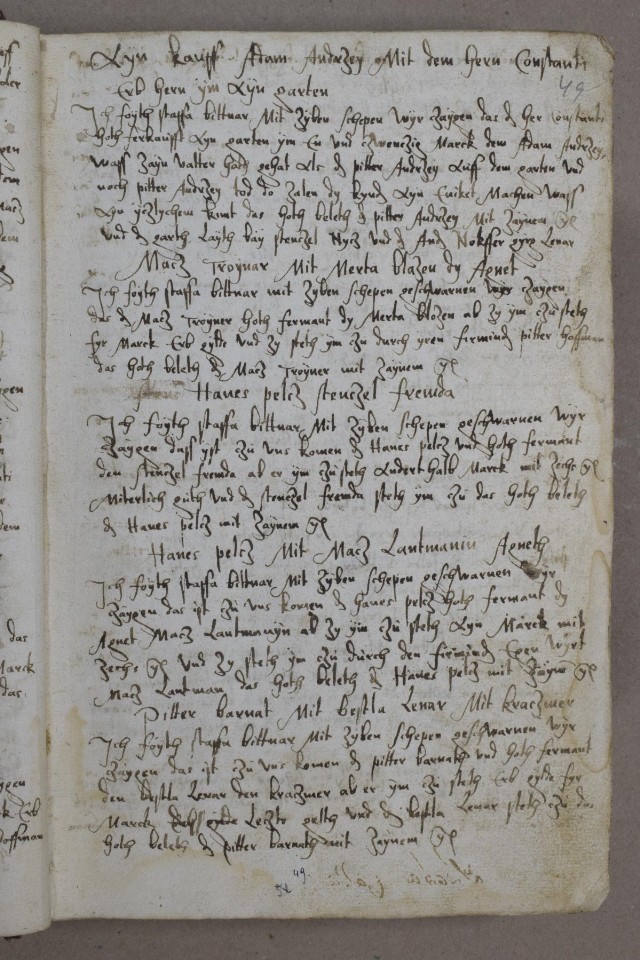 Ayn kauff Adam Andrzey Mit dem hern Constanti
Erb hern ym Ayn garten
49
Ich foyth staffa bittnar Mit zyben schepen wyr zaygen das d her Constanti
hoth ferkaufft Ayn garten ym Cu vnd czwenczic Marck dem Adam Andrzey
wass zayn vatter hoth gehat Als d pitter Andrzey Auff dem garten vnd
noch pitter Andrzey tod do zalen dy kynd Ayn Machen wass
Ayn ytzlychem kimt das hoth beleth d pitter Andrzey Mit zaynem gl
vnd d garth Layth bay stenczel Nycz vnd d And Nokffer Lenar
Macz Troynar Mit Merta blazen dy Agnet
Ich foyth staffa bittnar mit zyben schepen geschwarnen wyr zaygen
das d Macz Troyner hoth fermant dy Merta blozen ab zy ym czu steth
fyr Marck Erb gylde vnd zy steth ym zu durch yren firmind pitter hoffman
das hoth beleth d Macz Troyner mit zaynem gl
Hanes pelcz stenczel fremda
Ich foyth staffa bittnar Mit zyben schepen geschwarnen wyr
zaygen dass yst zu vns komen d Hanes pelcz vnd hoth fermant
den stenczel fremda ab er ym zu steth Anderthalb Marck mit zechs gl
Miterlich guth vnd d stenczel fremda steth ym czu das hoth beleth
d Hanes pelcz mit zaynem gl
Hanes pelcz Mit Macz Lantmanin Agneth
Ich foyth staffa bittnar Mit zyben schepen geschwarnen wyr
zaygen das ist zu vns komen d hanes pelcz hoth fermant dy
Agnet Macz Lantmanyn ab zy ym zu steth Ayn Marck mit
zechs gl vnd zy steth ym czu durch den firmind Eren wyrt
Macz Lantman das hoth beleth d Hanes pelcz mit zayne gl
Pitter barnat Mit bestla Lenar Mit kraczmer
Ich foyth staffa bittnar Mit zyben schepen geschwarnen wyr
zaygen das ist zu vns komen d pitter barnath vnd hoth fermant
den bestla Lenar den kraczmer ab er ym zu steth Erb gylde fyr
Marck gylde Leczte gelth vnd d bestla Lenar steth czu das
hoth beleth d pitter barnath mit zaynem gl
49